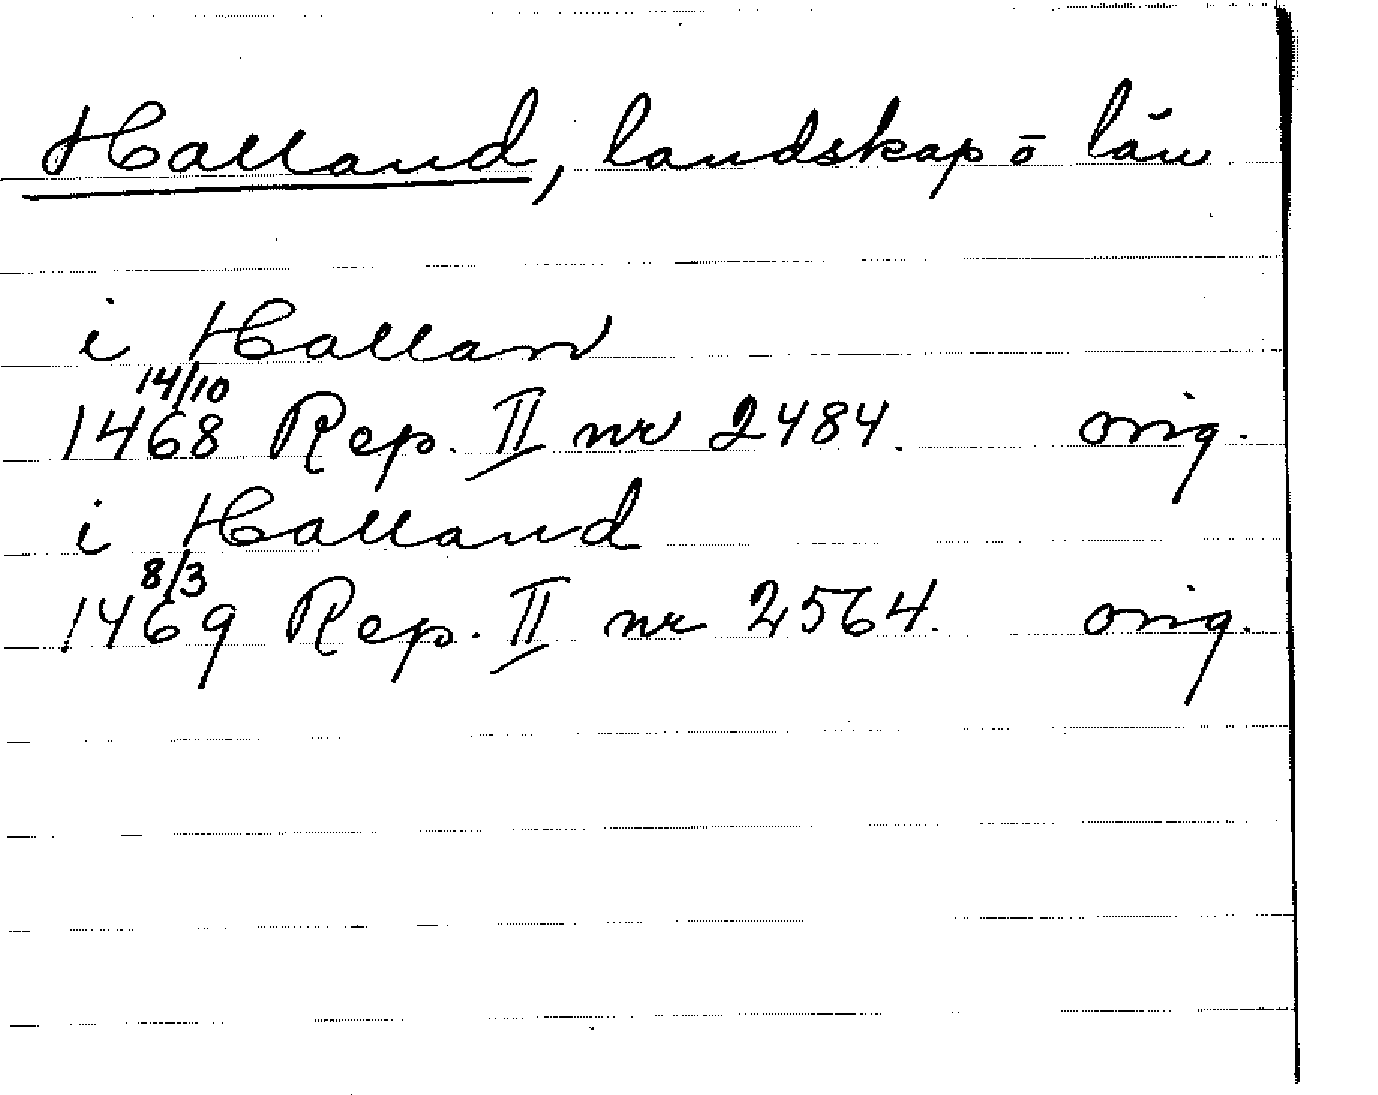 Halland, landskap o län
i Hallan
14/10
1468 Rep. II nr 2484. orig.
i Halland
8/3
1469 Rep. II nr 2564. orig.